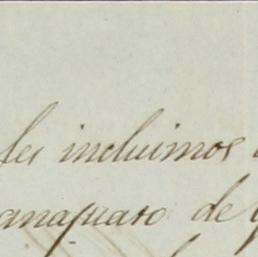 les incluimos
anajuato de